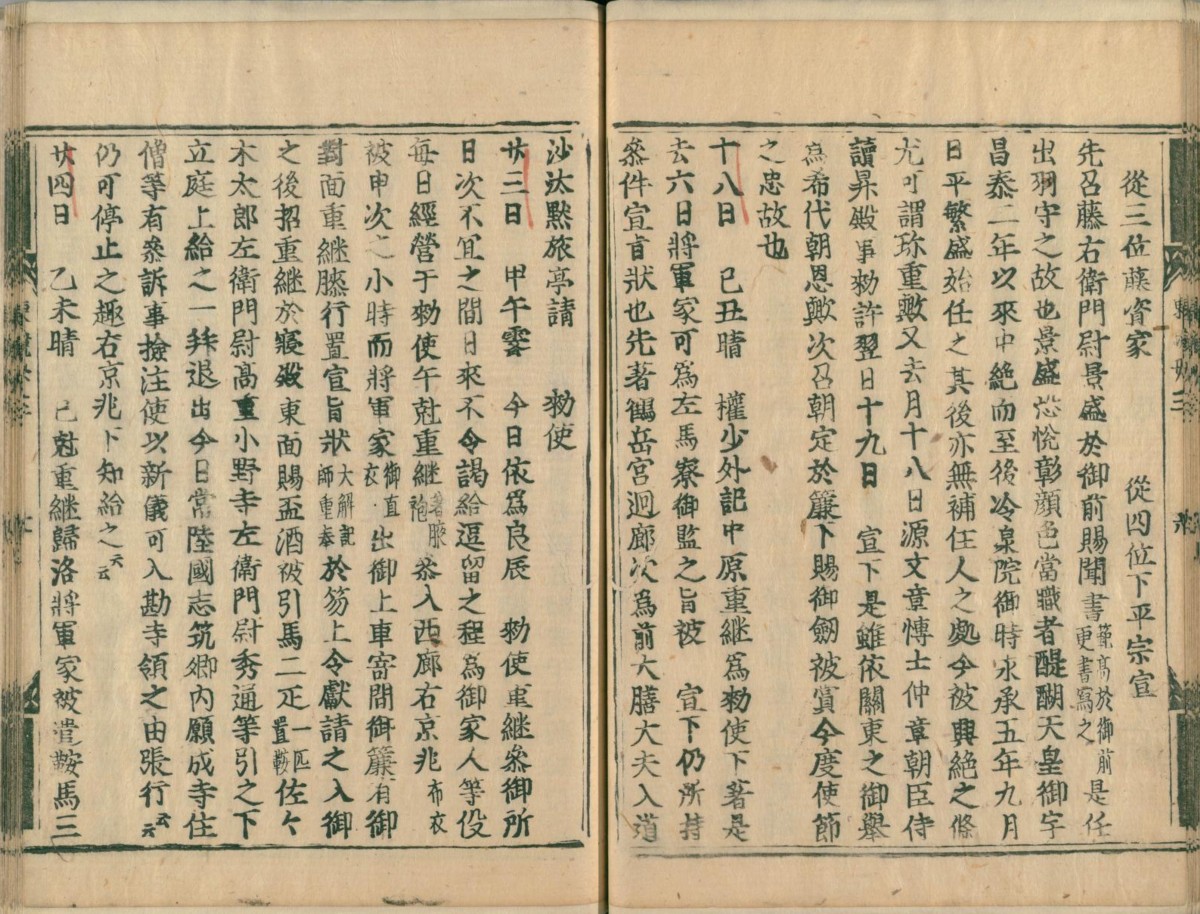 從三位藤資家　從四位下平宗宣
先召藤右衛門尉景盛於御前賜聞書範髙於御前更書寫之是任
出羽守之故也景盛忩恱彰顔色當職者醍醐天皇御宇
昌泰二年以來中絶而至後冷泉院御時永承五年九月
日平繁盛始任之其後亦無補任人之處今被興絶之條
尤可謂珎重歟又去月十八日源文章愽士仲章朝臣侍
讀昇殿事勅許翌日十九日　宣下是雖依關東之御擧
為希代朝恩歟次召朝定於簾下賜御劔被賞今度使節
之忠故也
十八日　己丑晴　權少外記中原重継為勅使下著是
去六日將軍家可為左馬寮御監之旨被　宣下仍所持
叅件宣旨狀也先著鶴岳宮迴廊次為前大膳大夫入道
沙汰點旅亭請　勅使
廿三日　甲午雪　今日依為良辰　勅使重継叅御所
日次不冝之間日來不令謁給逗留之程為御家人等役
每日經營于勅使午尅重継著腋袍叅入西廊右京兆布衣
被申次之小時而將軍家御直衣出御上車寄間御簾有御
對面重継膝行置宣旨狀大解記師重奉於笏上令獻請之入御
之後招重継於寢殿東面賜盃酒被引馬二疋一匹置鞍佐々
木太郎左衛門尉髙重小野寺左衛門尉秀通等引之下
立庭上給之一拜退出今日常陸國志筑郷內願成寺住
僧等有叅訴事撿注使以新儀可入勘寺領之由張行云云
仍可停止之趣右京兆下知給之云云
廿四日　乙未晴　巳尅重継歸洛將軍家被遣鞍馬三